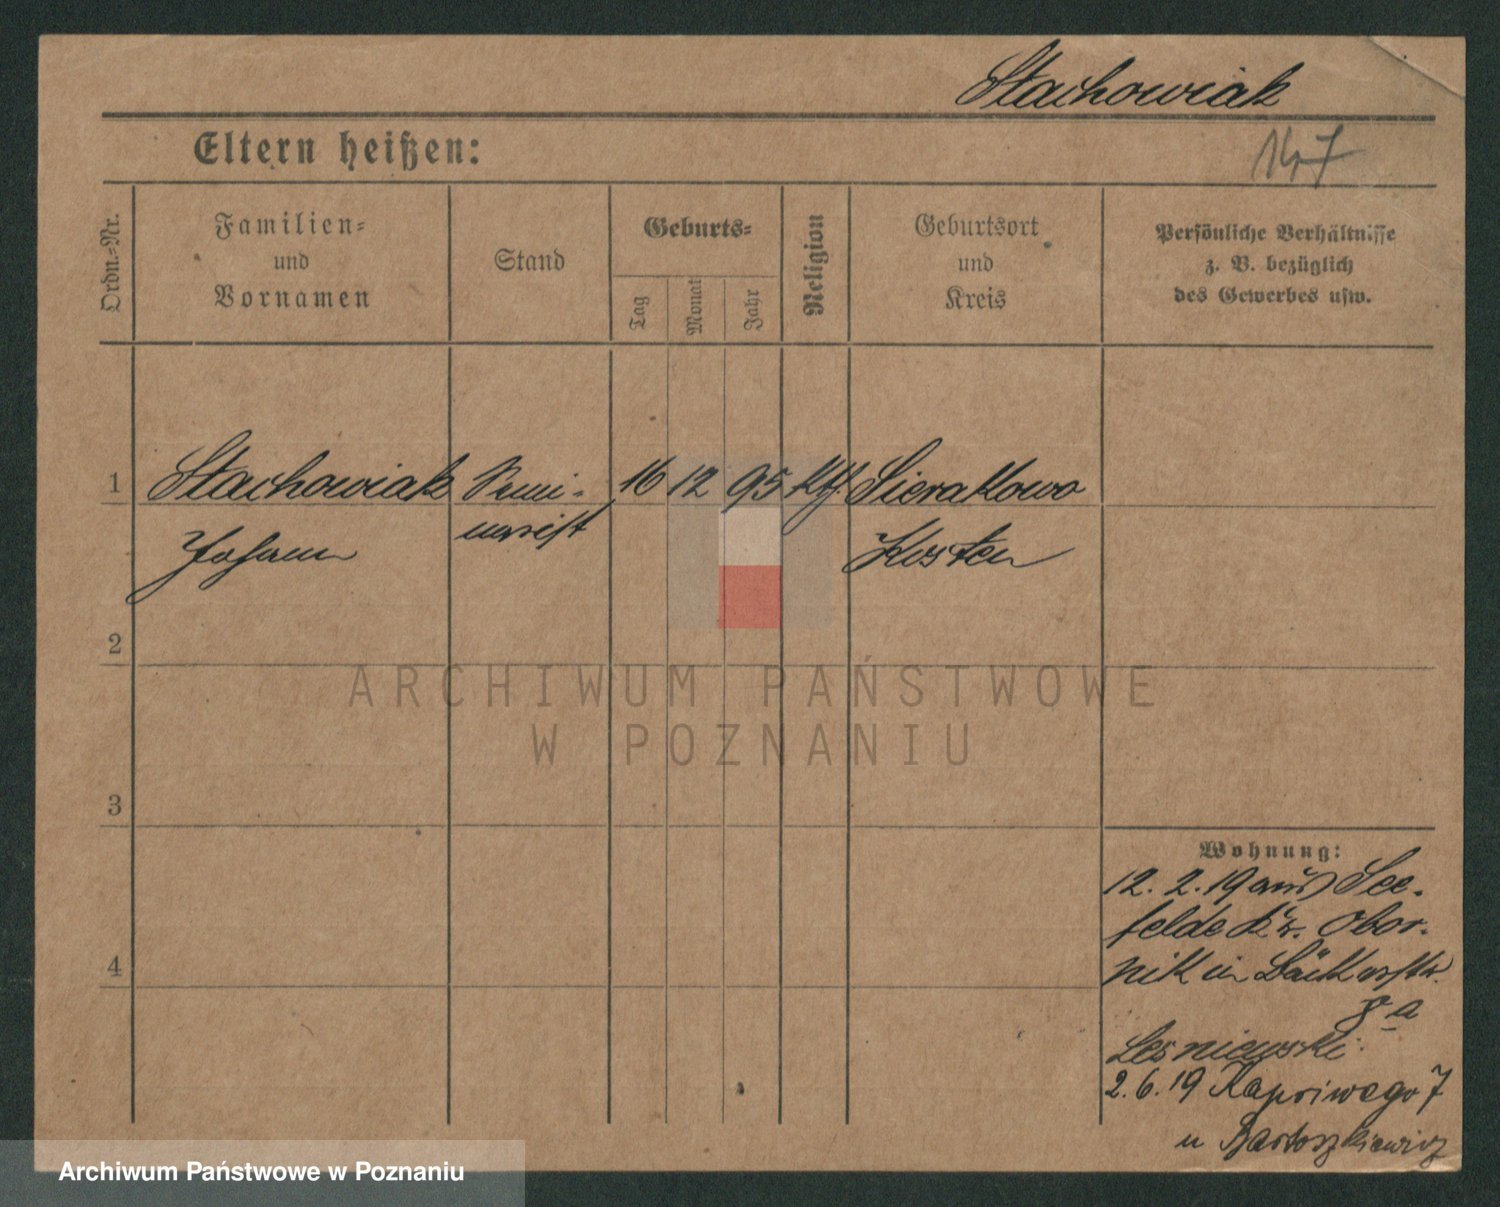 Stachowiak
Eltern heißen:
Nr 7
Ordn.-Nr.
Familien-
und
Vornamen
Stand
Geburts-
Tag
Monat
Jahr
Religion
Geburtsort
und
Kreis
Persönliche Verhältnisse
z. B. bezüglich
des Gewerbes usw.
1 Stachowiak Semi- 16 12 95 kth. Sierakowo
Johann narist Kosten
2
3
4
ARCHIWUM PAŃSTWOWE
W POZNANIU
Wohnung:
12. 2. 19 aus See-
felde Kr. Obor-
nik in
a
Lesniewski
2. 6. 19 Kapriwego 7
u Bartoszkiewicz
Archiwum Państwowe w Poznaniu